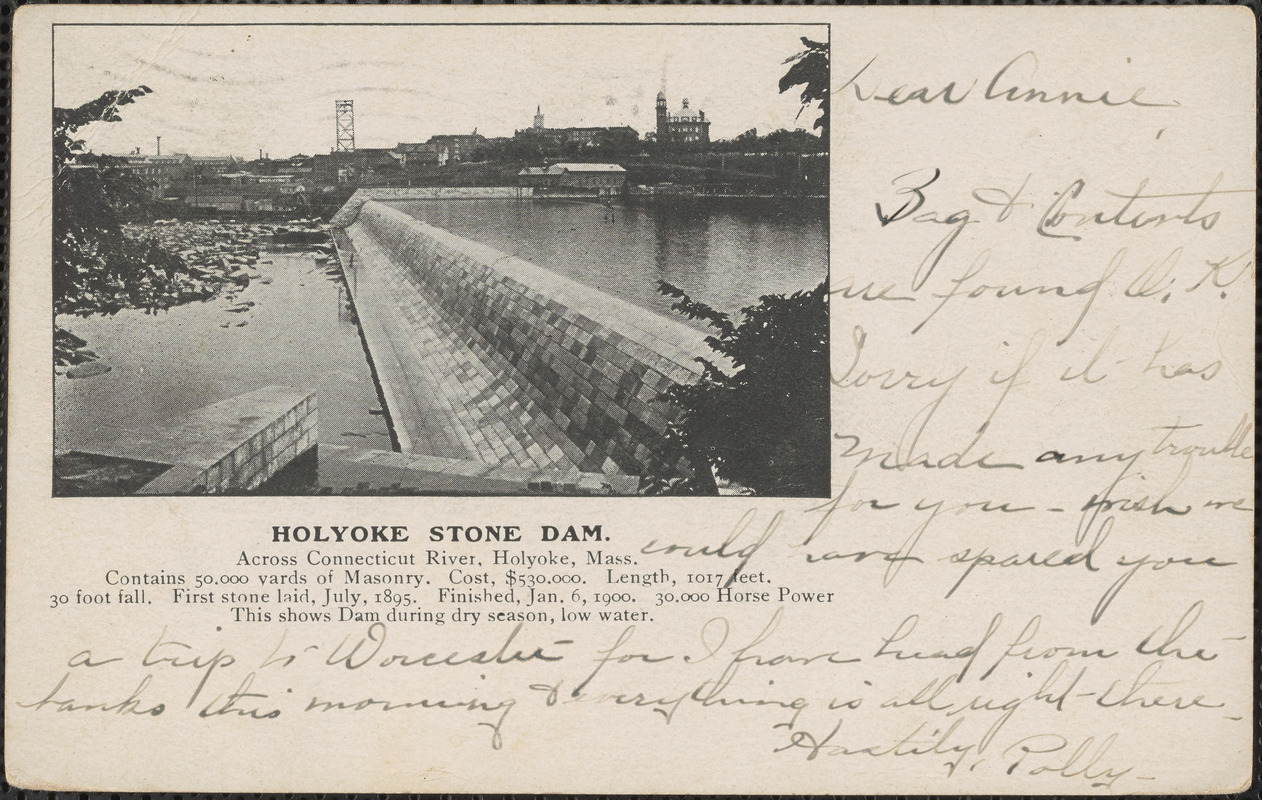 HOLYOKE STONE DAM.
Across Connecticut River, Holyoke, Mass.
Contains 50.000 yards of Masonry. Cost, $530.000. Length, 1017 feet.
30 foot fall. First stone laid, July, 1895. Finished, Jan. 6, 1900. 30.000 Horse Power
This shows Dam during dry season, low water.
Dear Annie
Bag & Contents
are found O. K.
Sorry if it has
made any trouble
for you - wish we
could have spared you
a trip to Worcester for I have heard from the
banks this morning & everything is all right - there -
Hastily, Polly -